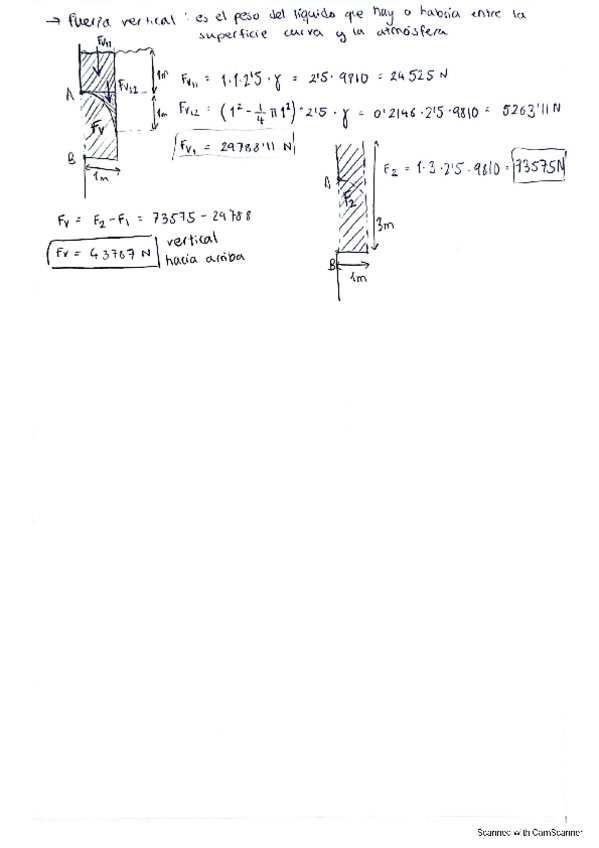 → Fuerza vertical: es el peso del líquido que hay o habría entre la
superficie curva y la atmósfera
Fv11
1m
A
Fv12
1m
Fv
B
1m
Fv11 = 1·1·2'5·γ = 2'5·9810 = 24525 N
Fv12 = (1² - 1/4 π 1²)·2'5·γ = 0'2146·2'5·9810 = 5263'11 N
Fv1 = 29788'11 N
A
F2
3m
B
1m
F2 = 1·3·2'5·9810 = 73575N
Fv = F2 - F1 = 73575 - 29788
Fv = 43787 N vertical
hacia arriba
1
Scanned with CamScanner